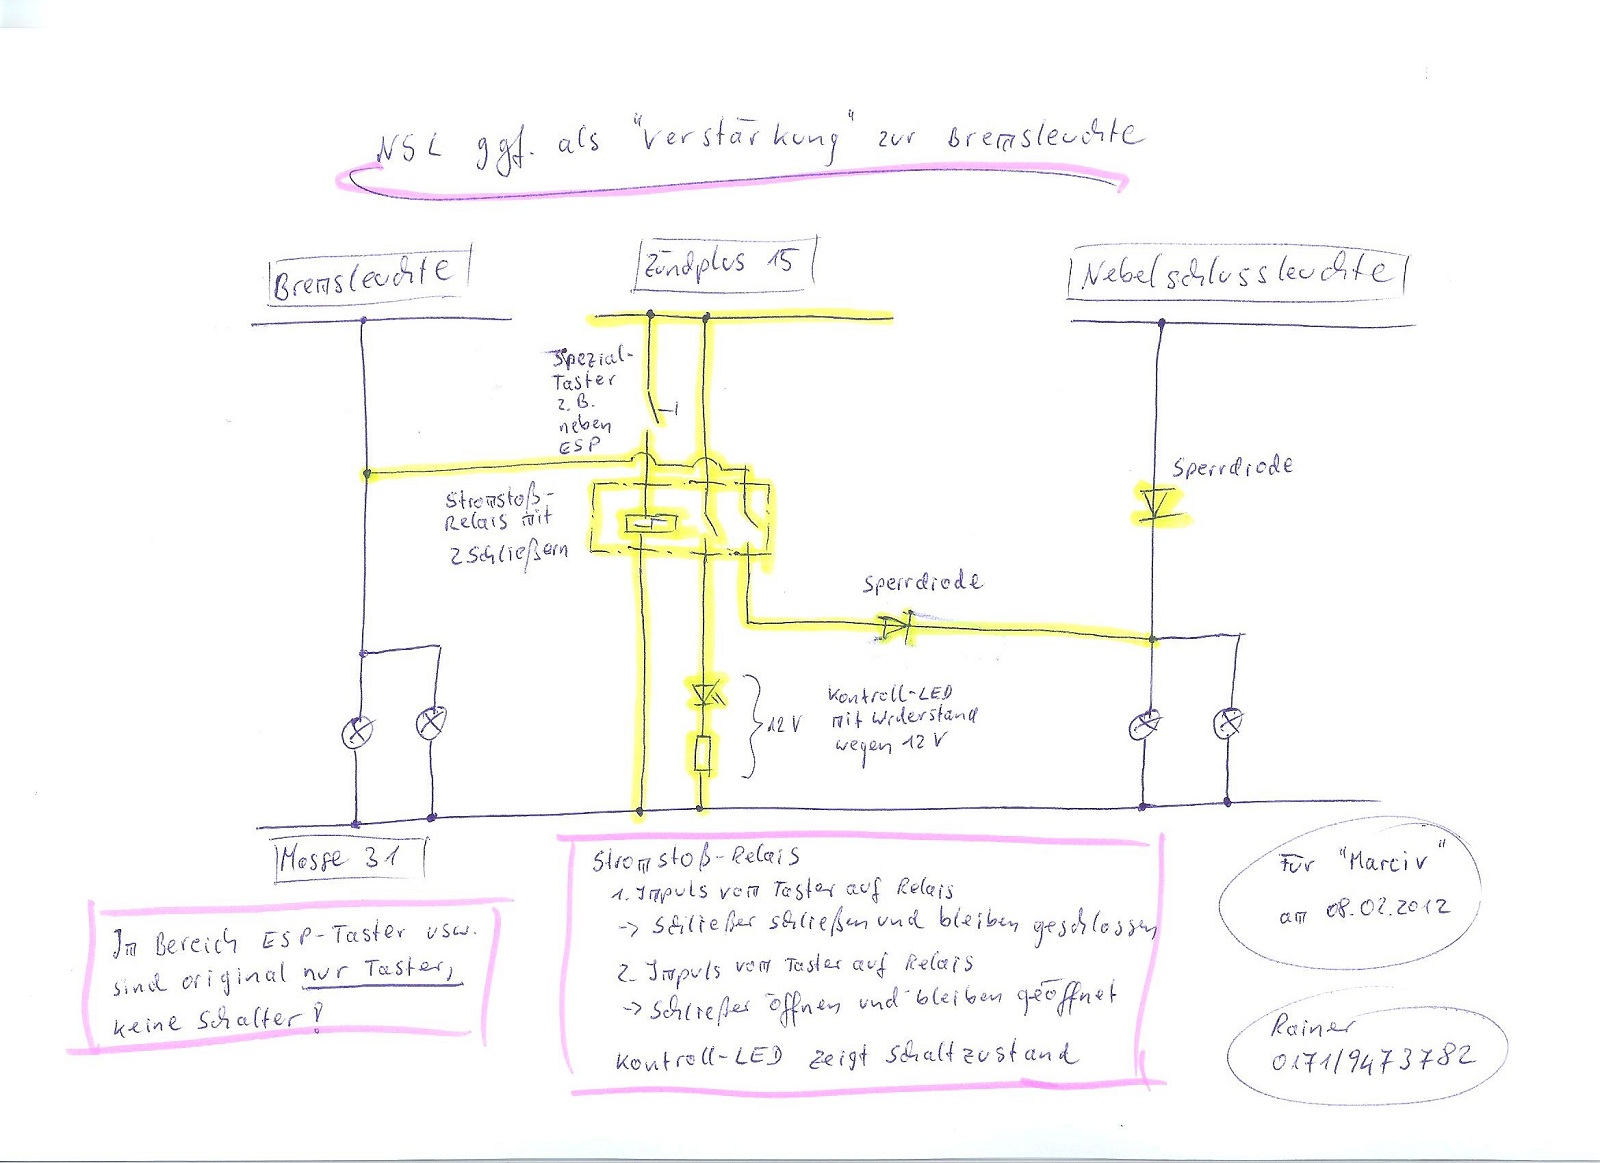 NSL ggf. als "Verstärkung" zur Bremsleuchte
Bremsleuchte
Zündplus 15
Nebelschlussleuchte
Spezial-
Taster
z.B.
neben
ESP
Sperrdiode
Stromstoß-
Relais mit
2 Schließern
Sperrdiode
12 V
Kontroll-LED
mit Widerstand
wegen 12 V
Masse 31
Im Bereich ESP-Taster usw.
sind original nur Taster,
keine Schalter!
Stromstoß-Relais
1. Impuls vom Taster auf Relais
-> Schließer schließen und bleiben geschlossen
2. Impuls vom Taster auf Relais
-> Schließer öffnen und bleiben geöffnet
Kontroll-LED zeigt Schaltzustand
Für "Marciv"
am 08.02.2012
Rainer
0171/9473782